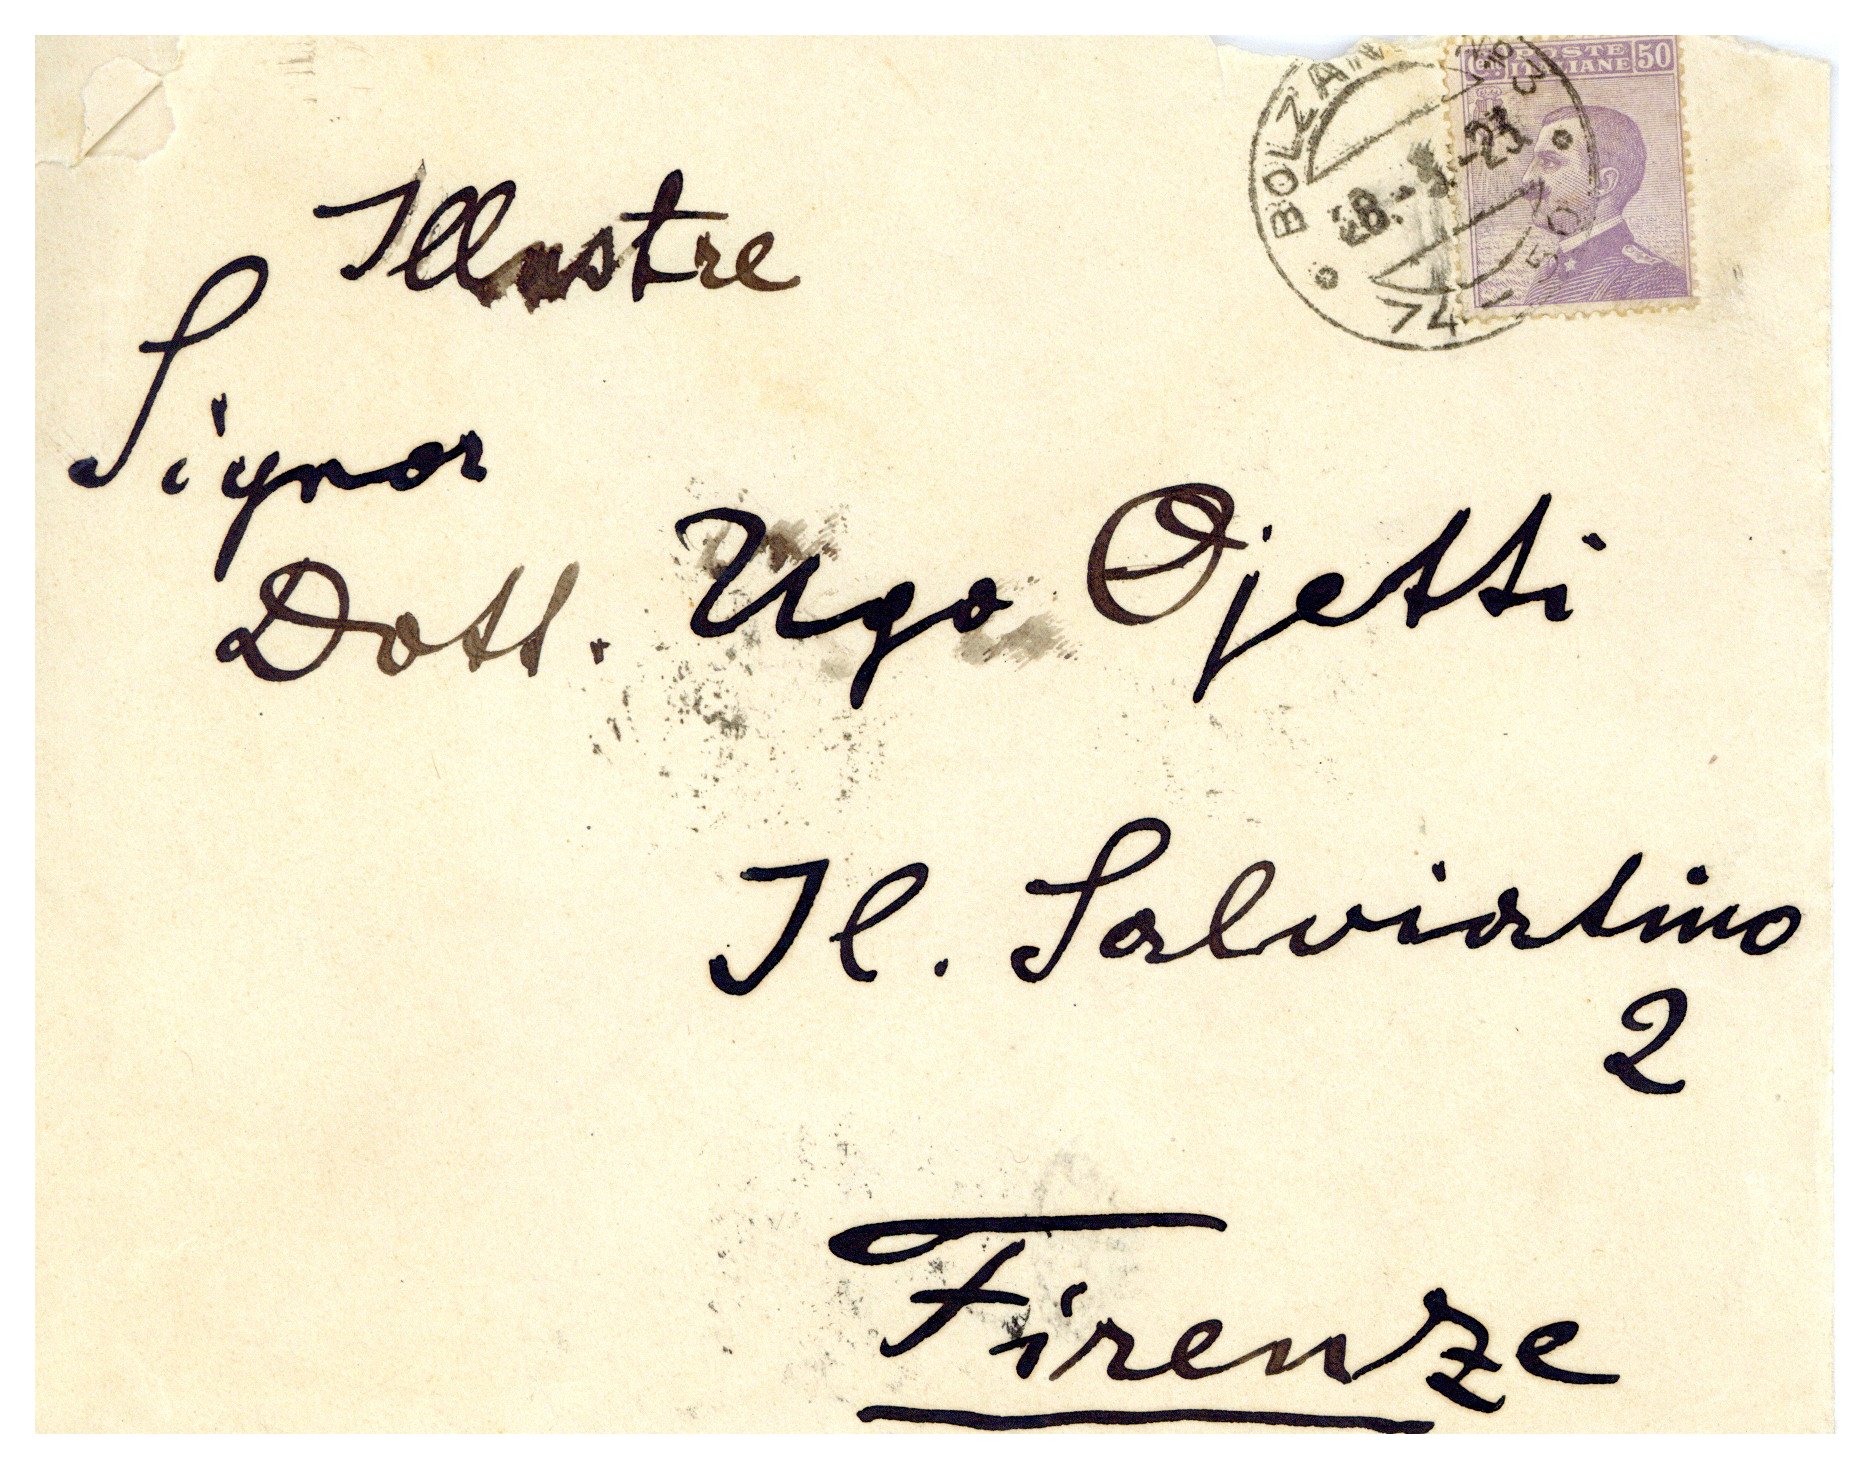 Illustre
Signor
Dott. Ugo Ojetti
Il. Salviatino
2
Firenze
POSTE
ITALIANE 50
BOLZANO
28.-5.-23